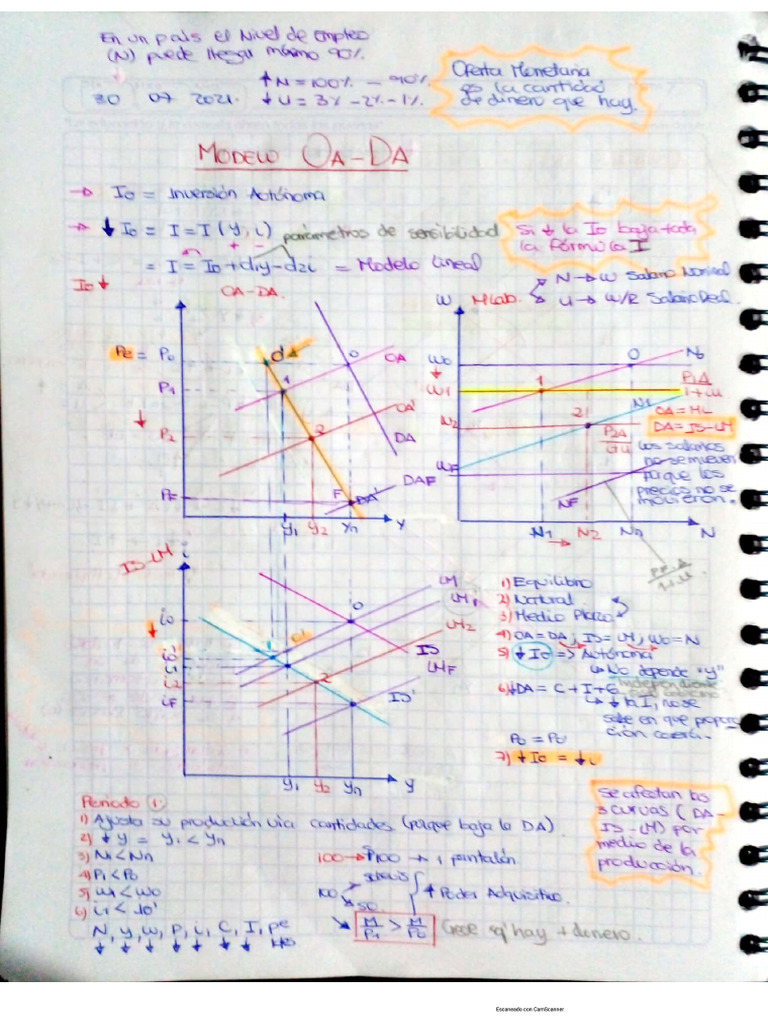 En un país el Nivel de empleo
(N) puede llegar máximo 90%.
↑N = 100% - 90%
↓U = 3% - 2% - 1%
Oferta Monetaria
es la cantidad
de dinero que hay.
30 07 2021.
MODELO OA-DA
→ Io = Inversión Autónoma
→ ↓Io = I = I (y, i) parámetros de sensibilidad
+ -
= I = Io + d1y - d2i = Modelo Lineal
Si ↓ la Io baja toda
la fórmula I
Io ↓
OA-DA.
W MLab.
N → W Salario Nominal
U → W/R Salario Real.
Pe = P0
P1
P2
PF
0'A
1
0
2
F
OA
OA'
DA
OAF
DA'
y1 y2 yn y
W0
W1
W2
WF
0
1
2
N0
P1A
1+u
N1
OA = ML
DA = IS-LM
P2A
Los salarios
no se mueven
porque los
precios no se
movieron.
NF
N1 → N2 Nn N
IS-LM
LM
LM1
LM2
LMF
IS
IS'
0
0'
1
2
iF
y1 y2 yn y
1) Equilibrio
2) Natural
3) Medio Plazo
4) OA = DA, IS = LM, W0 = N
5) ↓Io => Autónoma
↳ No depende "y"
6) ↓DA = C + I + G
↳ ↓ la I, no se
sabe en que propor
ción caerá.
P0 = P0
7) ↓Io = ↓i
Se afectan las
3 curvas (DA-
IS-LM) por
medio de la
producción.
Periodo 1:
1) Ajusta su producción via cantidades (porque baja la DA).
2) ↓y = y1 < yn
3) N1 < Nn
4) P1 < P0
5) W1 < W0
6) i1 < i0'
N, y, w, P, i, C, I, pe
↓ ↓ ↓ ↓ ↓ ↓ ↓
100 → P100 → 1 pantalón.
100
50
↑ Poder Adquisitivo.
M/P1 > M/P0
Crece xq' hay + dinero.
Escaneado con CamScanner